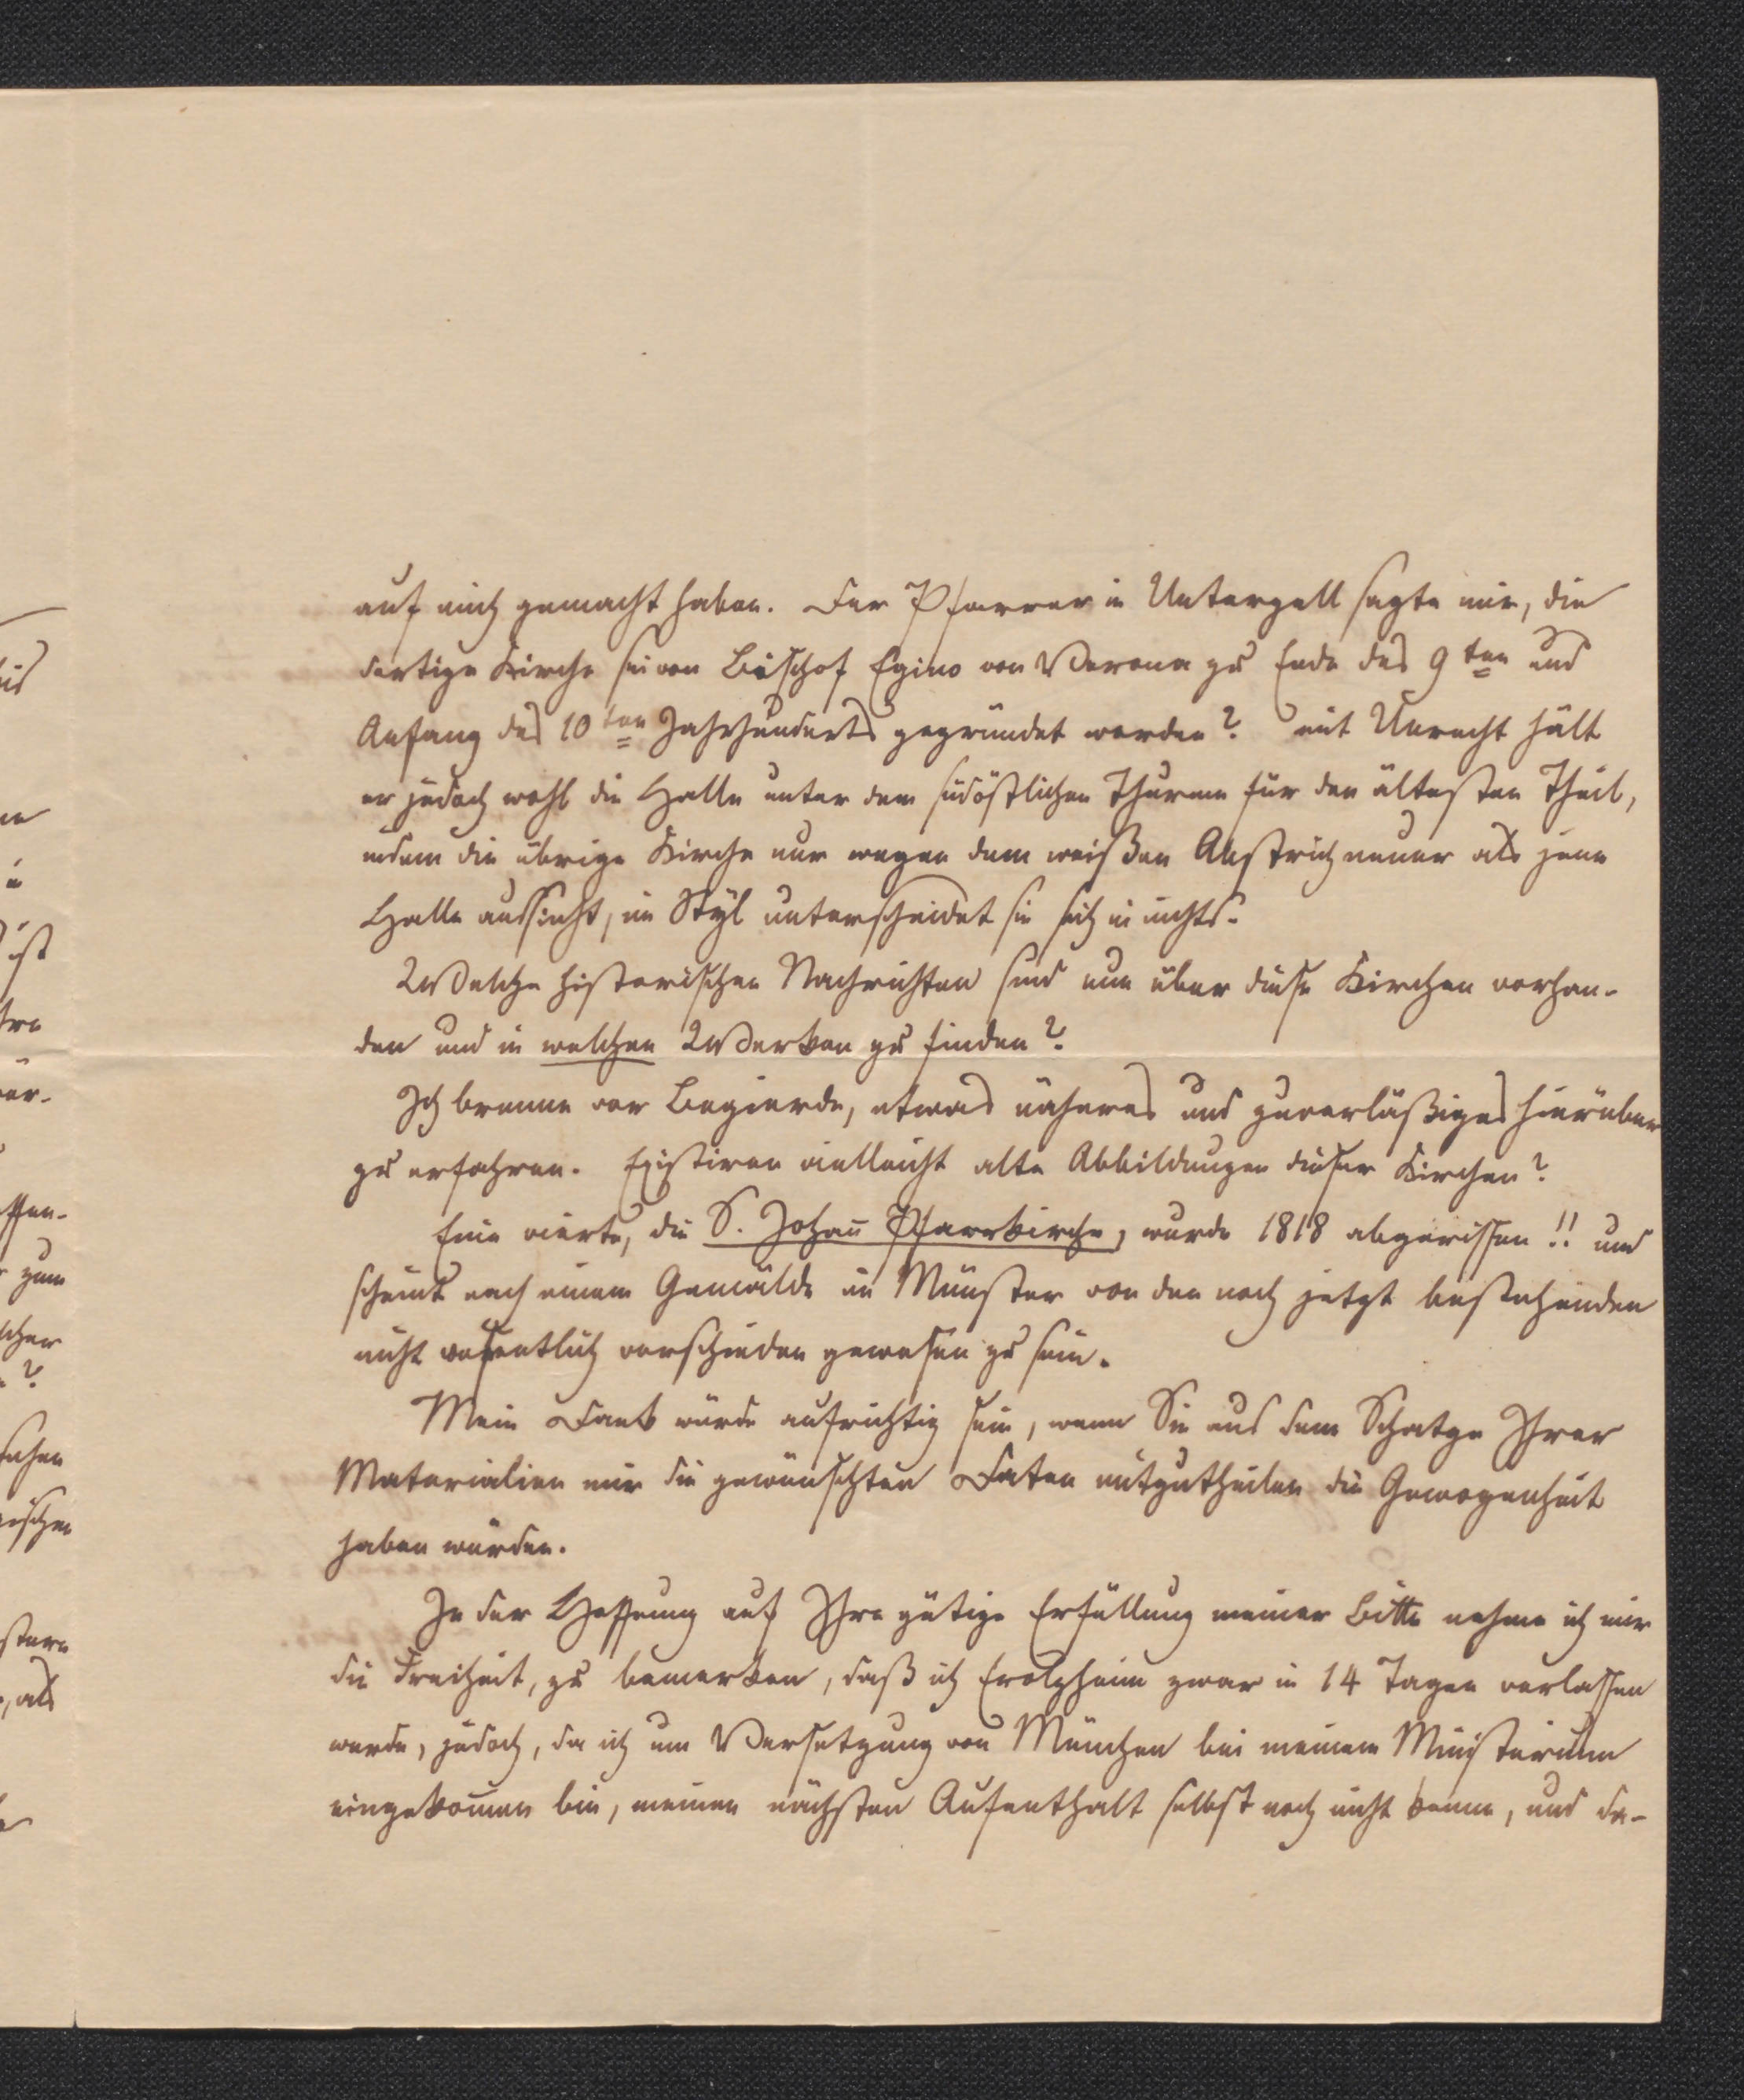 auf mich gemacht haben. Der Pfarrer in Unterzell sagte mir, die
dortige Kirche sei von Bischof Egino von Verona zu Ende des 9ten und
Anfang des 10ten Jahrhunderts gegründet worden? mit Unrecht hält
er jedoch wohl die Halle unter dem südöstlichen Thurme für den ältesten Theil,
indem die übrige Kirche nur wegen dem weißen Anstrich neuer als jene
Halle aussieht, im Styl unterscheidet sie sich in nichts.
Welche historischen Nachrichten sind nun über diese Kirchen vorhan-
den und in welchen Werken zu finden?
Ich brenne vor Begierde, etwas näheres und zuverläßiges hierüber
zu erfahren. Existiren vielleicht alte Abbildungen dieser Kirchen?
Eine vierte, die S. Johañ Pfarrkirche, wurde 1818 abgerissen!! und
scheint nach einem Gemälde im Münster von den noch jetzt bestehenden
nicht wesentlich verschieden gewesen zu sein.
Mein Dank würde aufrichtig sein, wenn Sie aus dem Schatze Ihrer
Materialien mir die gewünschten Daten mitzutheilen die Gewogenheit
haben würden.
In der Hoffnung auf Ihre gütige Erfüllung meiner Bitte nehme ich mir
die Freiheit, zu bemerken, daß ich Erolzheim zwar in 14 Tagen verlassen
werde, jedoch, da ich um Versetzung von München bei meinem Ministerium
eingekom̃en bin, meinen nächsten Aufenthalt selbst noch nicht kenne, und da-